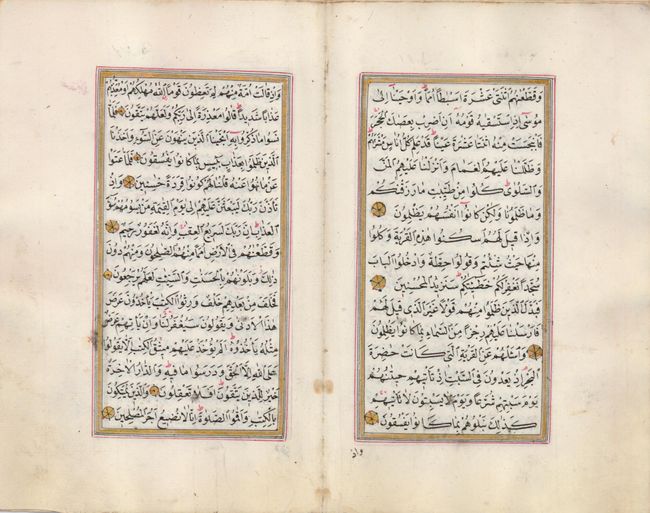 وَقَطَّعْنٰهُمُ اثْنَتَيْ عَشْرَةَ اَسْبَاطًا اُمَمًا وَاَوْحَيْنَا اِلٰى
مُوسٰى اِذِ اسْتَسْقٰيهُ قَوْمُهُ اَنِ اضْرِبْ بِعَصَاكَ الْحَجَرَ
فَانْبَجَسَتْ مِنْهُ اثْنَتَا عَشْرَةَ عَيْنًا قَدْ عَلِمَ كُلُّ اُنَاسٍ مَشْرَبَهُمْ
وَظَلَّلْنَا عَلَيْهِمُ الْغَمَامَ وَاَنْزَلْنَا عَلَيْهِمُ الْمَنَّ
وَالسَّلْوٰى كُلُوا مِنْ طَيِّبَاتِ مَا رَزَقْنَاكُمْ
وَمَا ظَلَمُونَا وَلٰكِنْ كَانُوا اَنْفُسَهُمْ يَظْلِمُونَ
وَاِذْ قِيلَ لَهُمُ اسْكُنُوا هٰذِهِ الْقَرْيَةَ وَكُلُوا
مِنْهَا حَيْثُ شِئْتُمْ وَقُولُوا حِطَّةٌ وَادْخُلُوا الْبَابَ
سُجَّدًا نَغْفِرْ لَكُمْ خَطِيئَاتِكُمْ سَنَزِيدُ الْمُحْسِنِينَ
فَبَدَّلَ الَّذِينَ ظَلَمُوا مِنْهُمْ قَوْلًا غَيْرَ الَّذِي قِيلَ لَهُمْ
فَاَرْسَلْنَا عَلَيْهِمْ رِجْزًا مِنَ السَّمَاءِ بِمَا كَانُوا يَظْلِمُونَ
وَاسْئَلْهُمْ عَنِ الْقَرْيَةِ الَّتِي كَانَتْ حَاضِرَةَ
الْبَحْرِ اِذْ يَعْدُونَ فِي السَّبْتِ اِذْ تَأْتِيهِمْ حِيتَانُهُمْ
يَوْمَ سَبْتِهِمْ شُرَّعًا وَيَوْمَ لَا يَسْبِتُونَ لَا تَأْتِيهِمْ
كَذٰلِكَ نَبْلُوهُمْ بِمَا كَانُوا يَفْسُقُونَ
واذ
وَاِذْ قَالَتْ اُمَّةٌ مِنْهُمْ لِمَ تَعِظُونَ قَوْمًا اللّٰهُ مُهْلِكُهُمْ اَوْ مُعَذِّبُهُمْ
عَذَابًا شَدِيدًا قَالُوا مَعْذِرَةً اِلٰى رَبِّكُمْ وَلَعَلَّهُمْ يَتَّقُونَ فَلَمَّا
نَسُوا مَا ذُكِّرُوا بِهِ اَنْجَيْنَا الَّذِينَ يَنْهَوْنَ عَنِ السُّوءِ وَاَخَذْنَا
الَّذِينَ ظَلَمُوا بِعَذَابٍ بَئِيسٍ بِمَا كَانُوا يَفْسُقُونَ فَلَمَّا عَتَوْا
عَنْ مَا نُهُوا عَنْهُ قُلْنَا لَهُمْ كُونُوا قِرَدَةً خَاسِئِينَ وَاِذْ
تَاَذَّنَ رَبُّكَ لَيَبْعَثَنَّ عَلَيْهِمْ اِلٰى يَوْمِ الْقِيٰمَةِ مَنْ يَسُومُهُمْ سُوءَ
الْعَذَابِ اِنَّ رَبَّكَ لَسَرِيعُ الْعِقَابِ وَاِنَّهُ لَغَفُورٌ رَحِيمٌ
وَقَطَّعْنَاهُمْ فِي الْاَرْضِ اُمَمًا مِنْهُمُ الصَّالِحُونَ وَمِنْهُمْ دُونَ
ذٰلِكَ وَبَلَوْنَاهُمْ بِالْحَسَنَاتِ وَالسَّيِّئَاتِ لَعَلَّهُمْ يَرْجِعُونَ
فَخَلَفَ مِنْ بَعْدِهِمْ خَلْفٌ وَرِثُوا الْكِتَابَ يَأْخُذُونَ عَرَضَ
هٰذَا الْاَدْنٰى وَيَقُولُونَ سَيُغْفَرُ لَنَا وَاِنْ يَأْتِهِمْ عَرَضٌ
مِثْلُهُ يَأْخُذُوهُ اَلَمْ يُؤْخَذْ عَلَيْهِمْ مِيثَاقُ الْكِتَابِ اَنْ لَا يَقُولُوا
عَلَى اللّٰهِ اِلَّا الْحَقَّ وَدَرَسُوا مَا فِيهِ وَالدَّارُ الْاٰخِرَةُ
خَيْرٌ لِلَّذِينَ يَتَّقُونَ اَفَلَا تَعْقِلُونَ وَالَّذِينَ يُمَسِّكُونَ
بِالْكِتَابِ وَاَقَامُوا الصَّلٰوةَ اِنَّا لَا نُضِيعُ اَجْرَ الْمُصْلِحِينَ